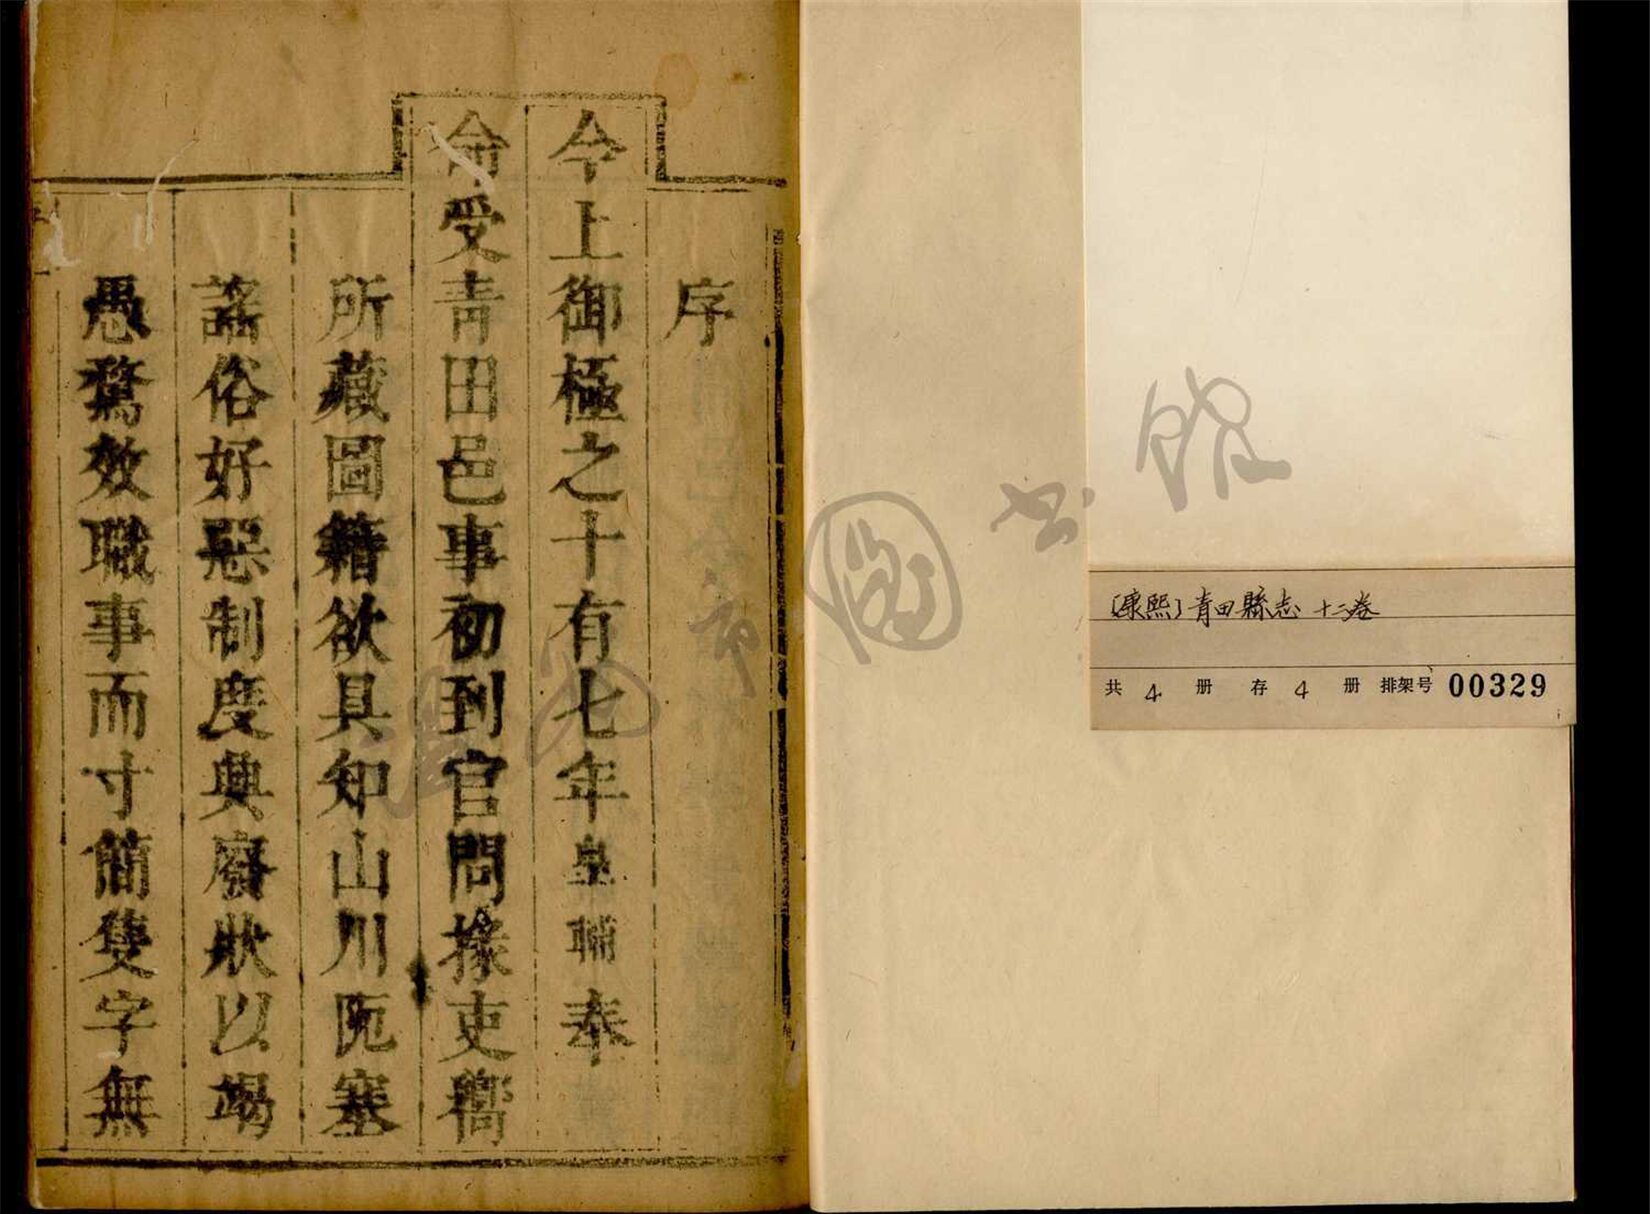 序
今上御極之十有七年皇輔奉
命受青田邑事初到官問掾吏嚮
所藏圖籍欲具知山川阨塞
謠俗好惡制度興廢狀以竭
愚鶩效職事而寸簡隻字無
〔康熙〕青田縣志 十二卷
共 4 册 存 4 册 排架号 00329
温州市图书馆